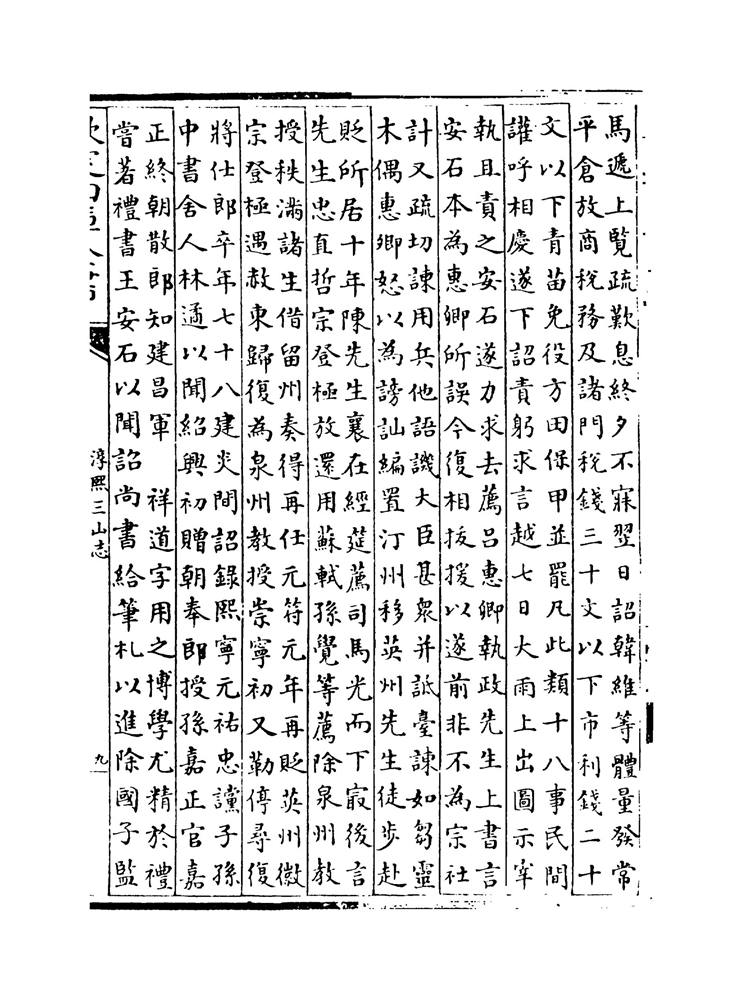 馬遞上覽疏歎息終夕不寐翌日詔韓維等體量發常
平倉放商稅務及諸門稅錢三十文以下市利錢二十
文以下青苗免役方田保甲並罷凡此類十八事民間
讙呼相慶遂下詔責躬求言越七日大雨上出圖示宰
執且責之安石遂力求去薦呂惠卿執政先生上書言
安石本為惠卿所誤今復相扳援以遂前非不為宗社
計又疏切諫用兵他語譏大臣甚衆并詆臺諫如芻靈
木偶惠卿怒以為謗訕編置汀州移英州先生徒步赴
貶所居十年陳先生襄在經筵薦司馬光而下㝡後言
先生忠直哲宗登極放還用蘇軾孫覺等薦除泉州教
授秩滿諸生借留州奏得再任元符元年再貶英州徽
宗登極遇赦東歸復為泉州教授崇寧初又勒停尋復
將仕郎卒年七十八建炎間詔錄熙寧元祐忠讜子孫
中書舍人林遹以聞紹興初贈朝奉郎授孫嘉正官嘉
正終朝散郎知建昌軍　祥道字用之博學尤精於禮
嘗著禮書王安石以聞詔尚書給筆札以進除國子監
淳熙三山志
九